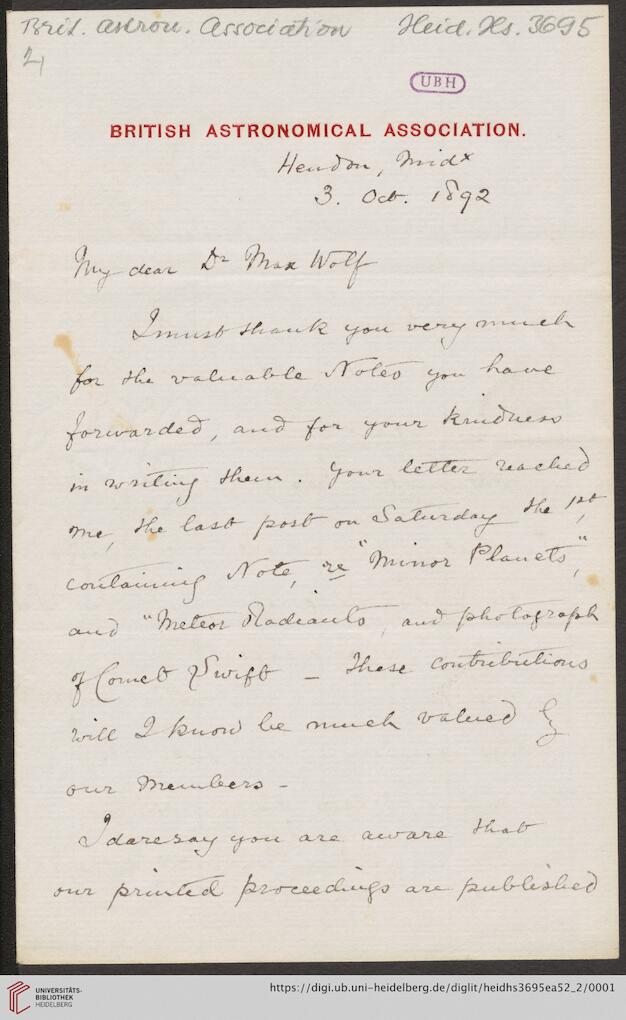 Brit. Astron. Association Heid. Hs. 3695
UBH
BRITISH ASTRONOMICAL ASSOCIATION.
Hendon, Midx
3. Oct. 1892
My dear Dr Max Wolf
I must thank you very much
for the valuable Notes you have
forwarded, and for your kindness
in writing them. Your letter reached
me, the last post on Saturday the 1st,
containing Note, re "Minor Planets,"
and "Meteor Radiants, and photograph
of Comet Swift – These contributions
will I know be much valued by
our Members –
I daresay you are aware that
our printed proceedings are published
UNIVERSITÄTS-
BIBLIOTHEK
HEIDELBERG
https://digi.ub.uni-heidelberg.de/diglit/heidhs3695ea52_2/0001